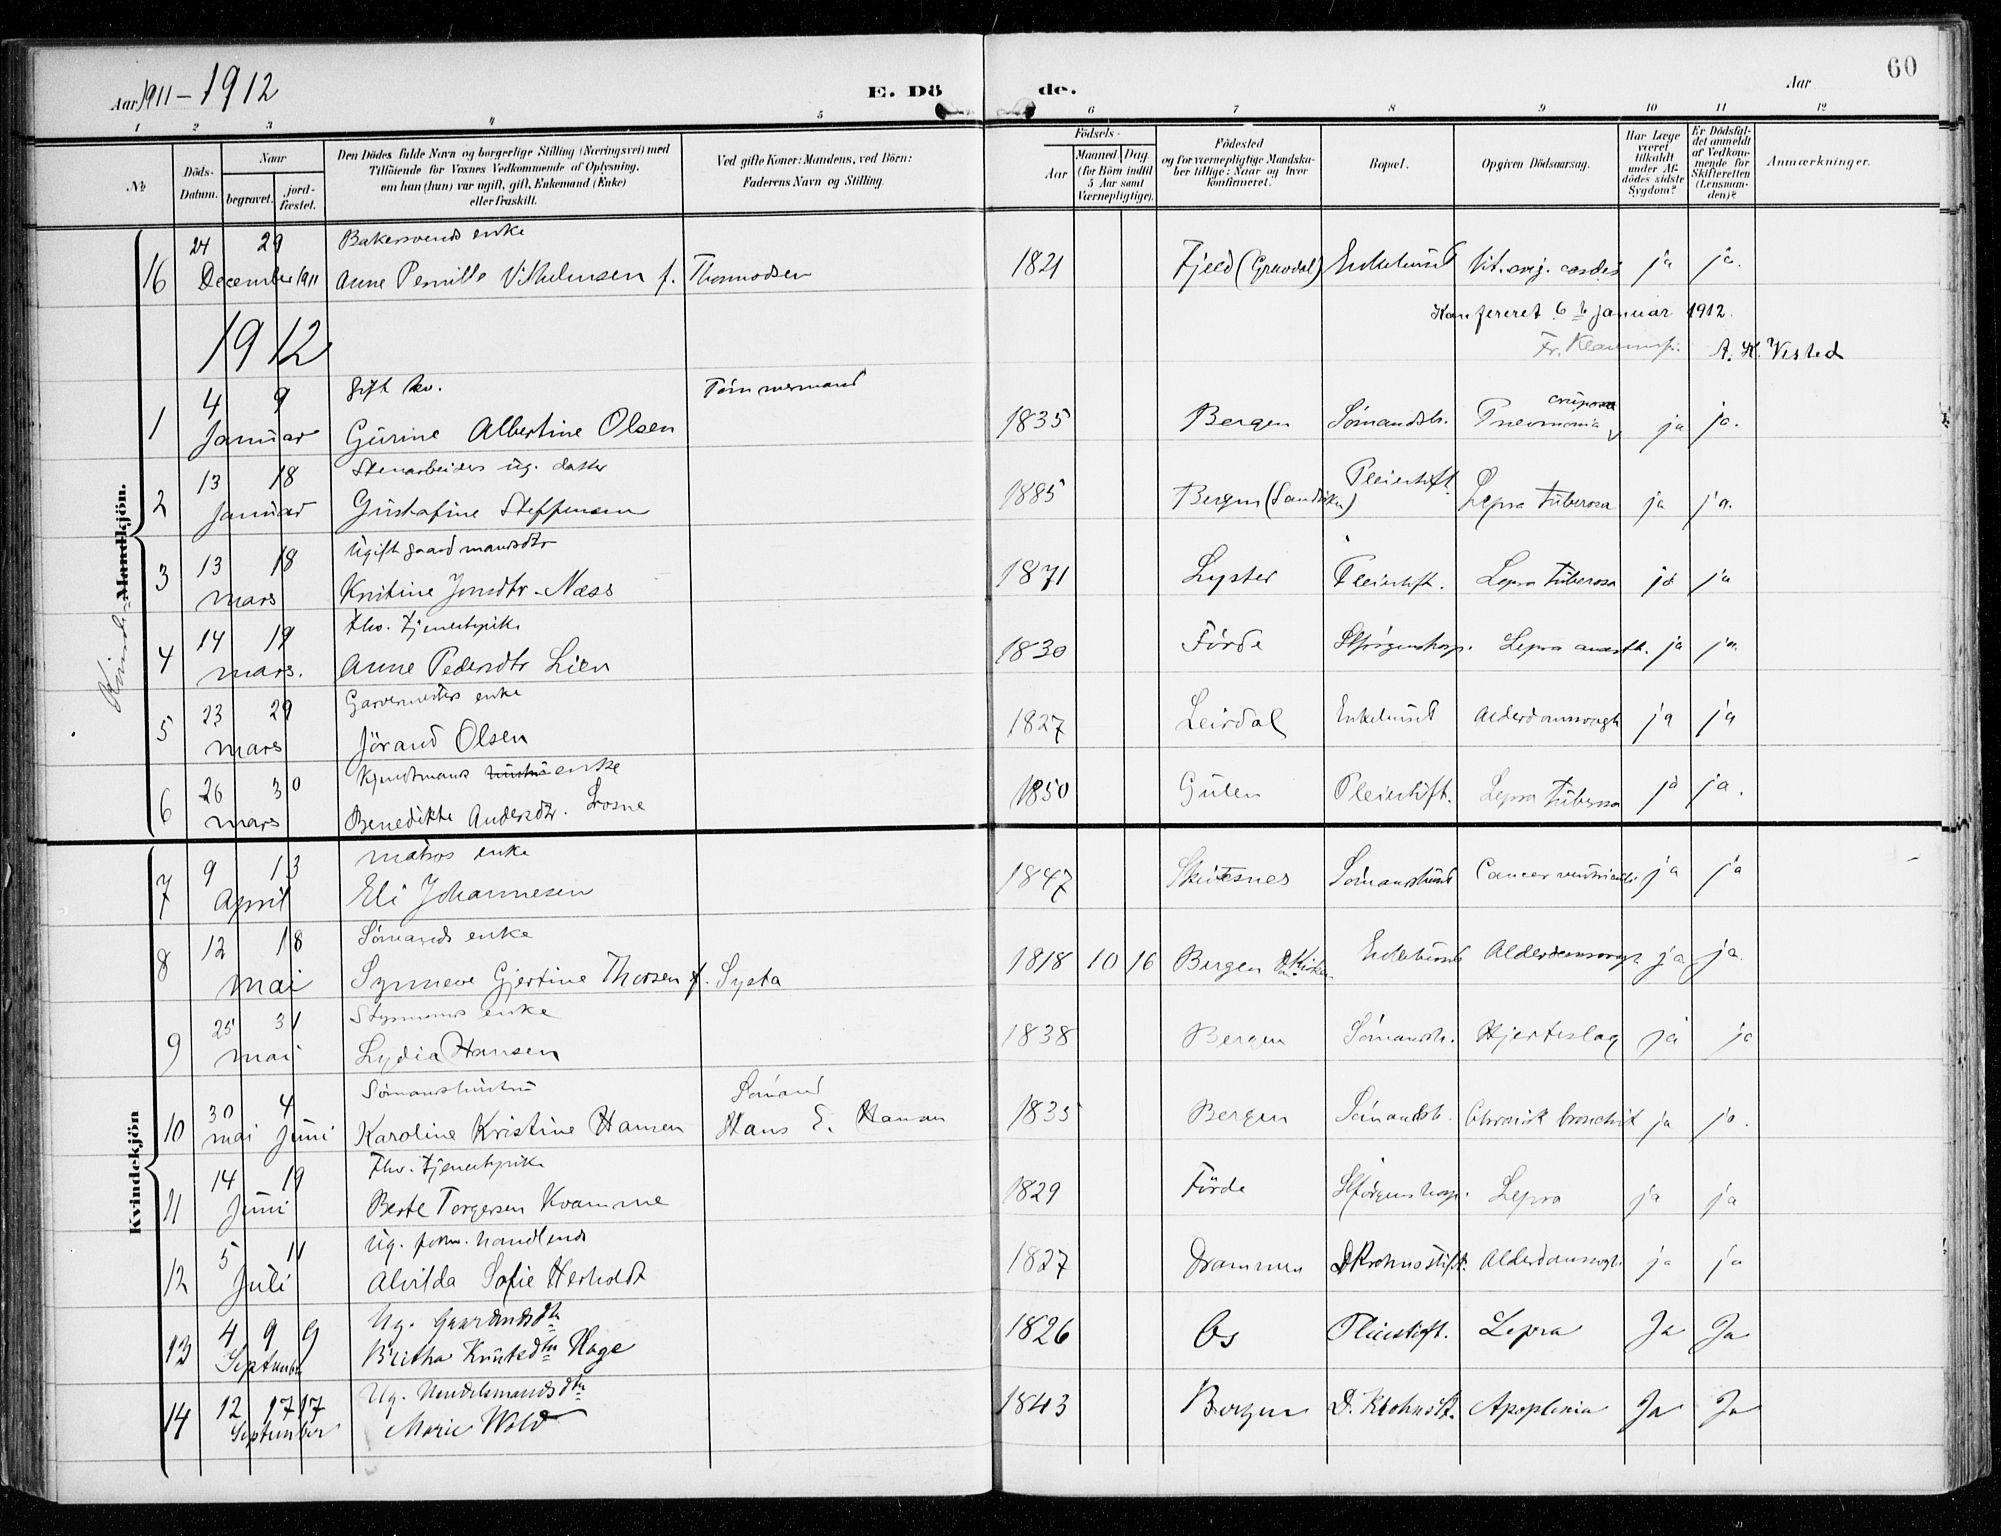 60
Aar 1911 – 1912
E. Dö de.
Aar
1 2 3 4 5 6 7 8 9 10 11 12
№
Döds-Datum.
Naar
begravet.
jord-fæstet.
Den Dödes fulde Navn og borgerlige Stilling (Næringsvei) med
Tilföiende for Voxnes Vedkommende af Oplysning,
om han (hun) var ugift, gift, Enkemand (Enke)
eller fraskilt.
Ved gifte Koner: Mandens, ved Börn:
Faderens Navn og Stilling.
Födsels-
Aar
Maaned Dag
(for Börn indtil
5 Aar samt
Værnepligtige).
Födested
og for værnepligtige Mandska-
ber tillige: Naar og hvor
konfirmeret.
Bopæl.
Opgiven Dödsaarsag.
Har Læge
været
tilkaldt
under Af-
dödes sidste
Sygdom?
Er Dödsfal-
det anmeldt
af Vedkom-
mende for
Skifteretten
(Lensman-
den)?
Anmærkninger.
Mandkjön.
Kvindekjön
24 29 Bakersvends enke
16 December 1911 Anne Pernille Vilhelmsen f. Thormodsen 1821 Fjeld (Gravdal) Enkehuset Vit. org. cordis ja ja.
Konfereret 6 januar 1912.
A. K. Vested
1912
4 9 Gift kv. Tømmermand
1 Januar Gurine Albertine Olsen 1835 Bergen Sømandsh. Pneumonia cruposa ja ja.
13 18 Stenarbeiders ug. datter
2 Januar Gustafine Steffensen 1885 Bergen (Sandviken) Pleiestift. Lepra tuberosa ja ja.
13 18 Ugift gaardmandsdtr
3 mars Kristine Jonsdtr. Næss 1871 Lyster Pleiestift. Lepra tuberosa ja ja
14 19 Fhv. tjenestepike
4 mars. Anne Pedersdtr Lien 1830 Förde St Jørgenshosp. Lepra anæsth. ja ja
23 29 Garvermesters enke
5 mars Jörand Olsen 1827 Leirdal Enkehuset Alderdomssvagh ja ja
26 30 enke
6 mars Benedikte Andersdtr. Losne 1850 Gulen Pleiestift. Lepra tuberosa ja ja.
9 13 Matros enke
7 April Eli Johannesen 1847 Skutesnes Sömandshuset Cancer ventriculi ja ja
12 18 Sömands enke
8 mai Synneve Gjertine Thorsen f. Systa 1818 10 16 Bergen Enkehuset Alderdomssvagh ja ja.
25 31 Styrmans enke
9 mai Lydia Hansen 1838 Bergen Sömandsh. Hjerteslag ja ja
30 4 Sømandshustru Sömand
10 mai Juni Karoline Kristine Hansen Hans E. Hansen 1835 Bergen Sömandsh. Chronisk bronchit ja ja.
14 19 Fhv. tjenestepike
11 Juni Berte Torgersen Kvamme 1829 Förde St Jørgenshosp. Lepra ja ja
5 11 Ug. forhv. handlende
12 Juli Alvilda Sofie Herholdt 1827 Drammen D Krohns stift. Alderdomssvagh. ja ja
4 9 9 Ug. Gaardmdsdtr
13 September Britha Knutsdtr Hage 1826 Os Pleiestift. Lepra Ja Ja
12 17 17 Ug. Handelsmandsdtr
14 September Marie Wold 1843 Bergen D. Krohns St. Apoplexia Ja Ja